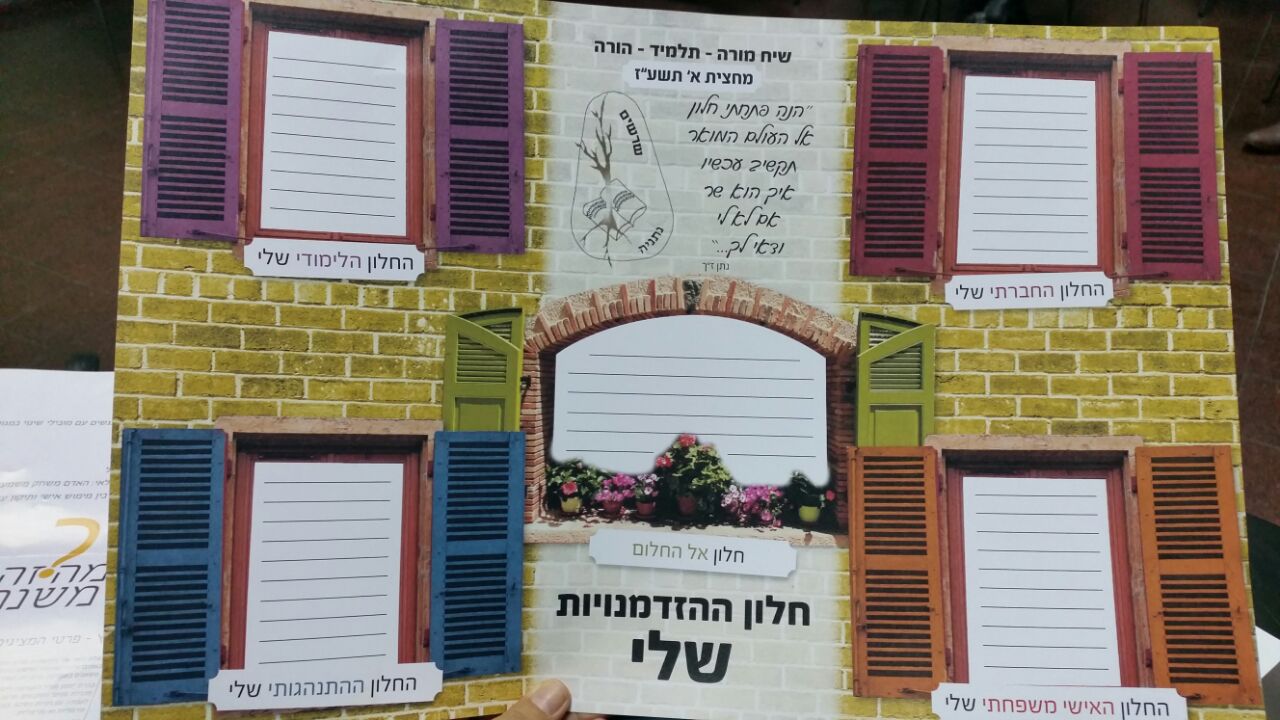 שיח מורה - תלמיד - הורה
מחצית א' תשע"ז
"הנה פתחתי חלון
אל העולם המואר
תקשיב עכשיו
איך הוא שר
אם לא לי
ודאי לך..."
נתן זך
שרשים
נתניה
החלון החברתי שלי
החלון הלימודי שלי
חלון אל החלום
חלון ההזדמנויות
שלי
החלון האישי משפחתי שלי
החלון ההתנהגותי שלי
עם מובילי שינוי
האדם משחק
מימוש אישי ותיקון
מה זה
משנה
?